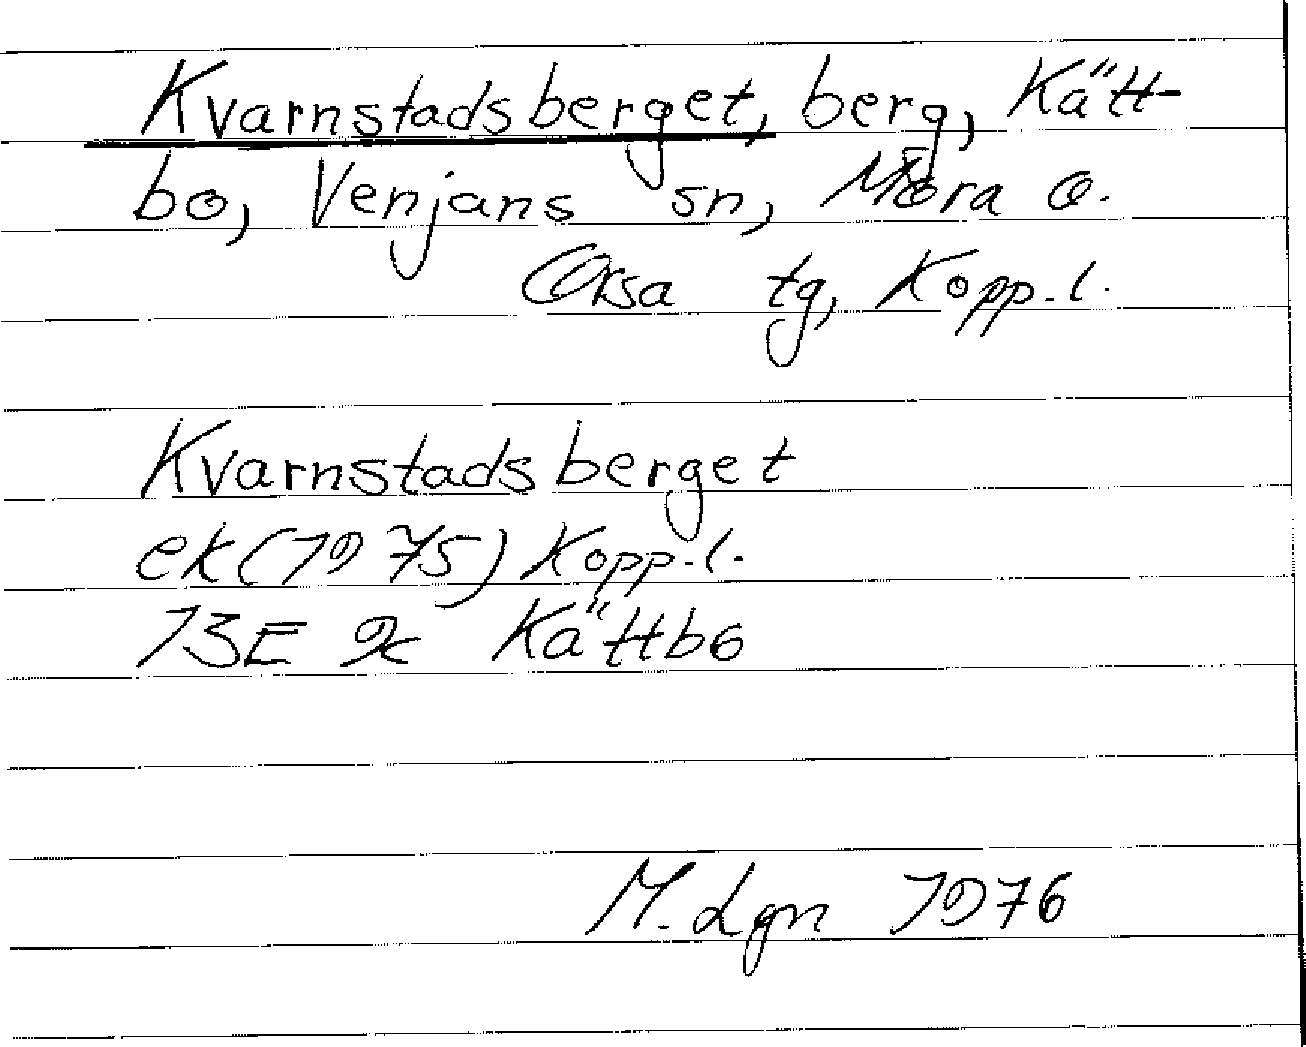 Kvarnstadsberget, berg, Kätt-
bo, Venjans sn, Mora o.
Orsa tg, Kopp.l.
Kvarnstadsberget
ek(1975) Kopp.l.
13E 9c Kättbo
M. Lgn 1976